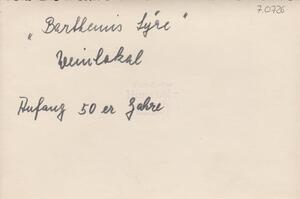 7.0726
„Barthemis Lyre"
Weinlokal
Anfang 50er Jahre